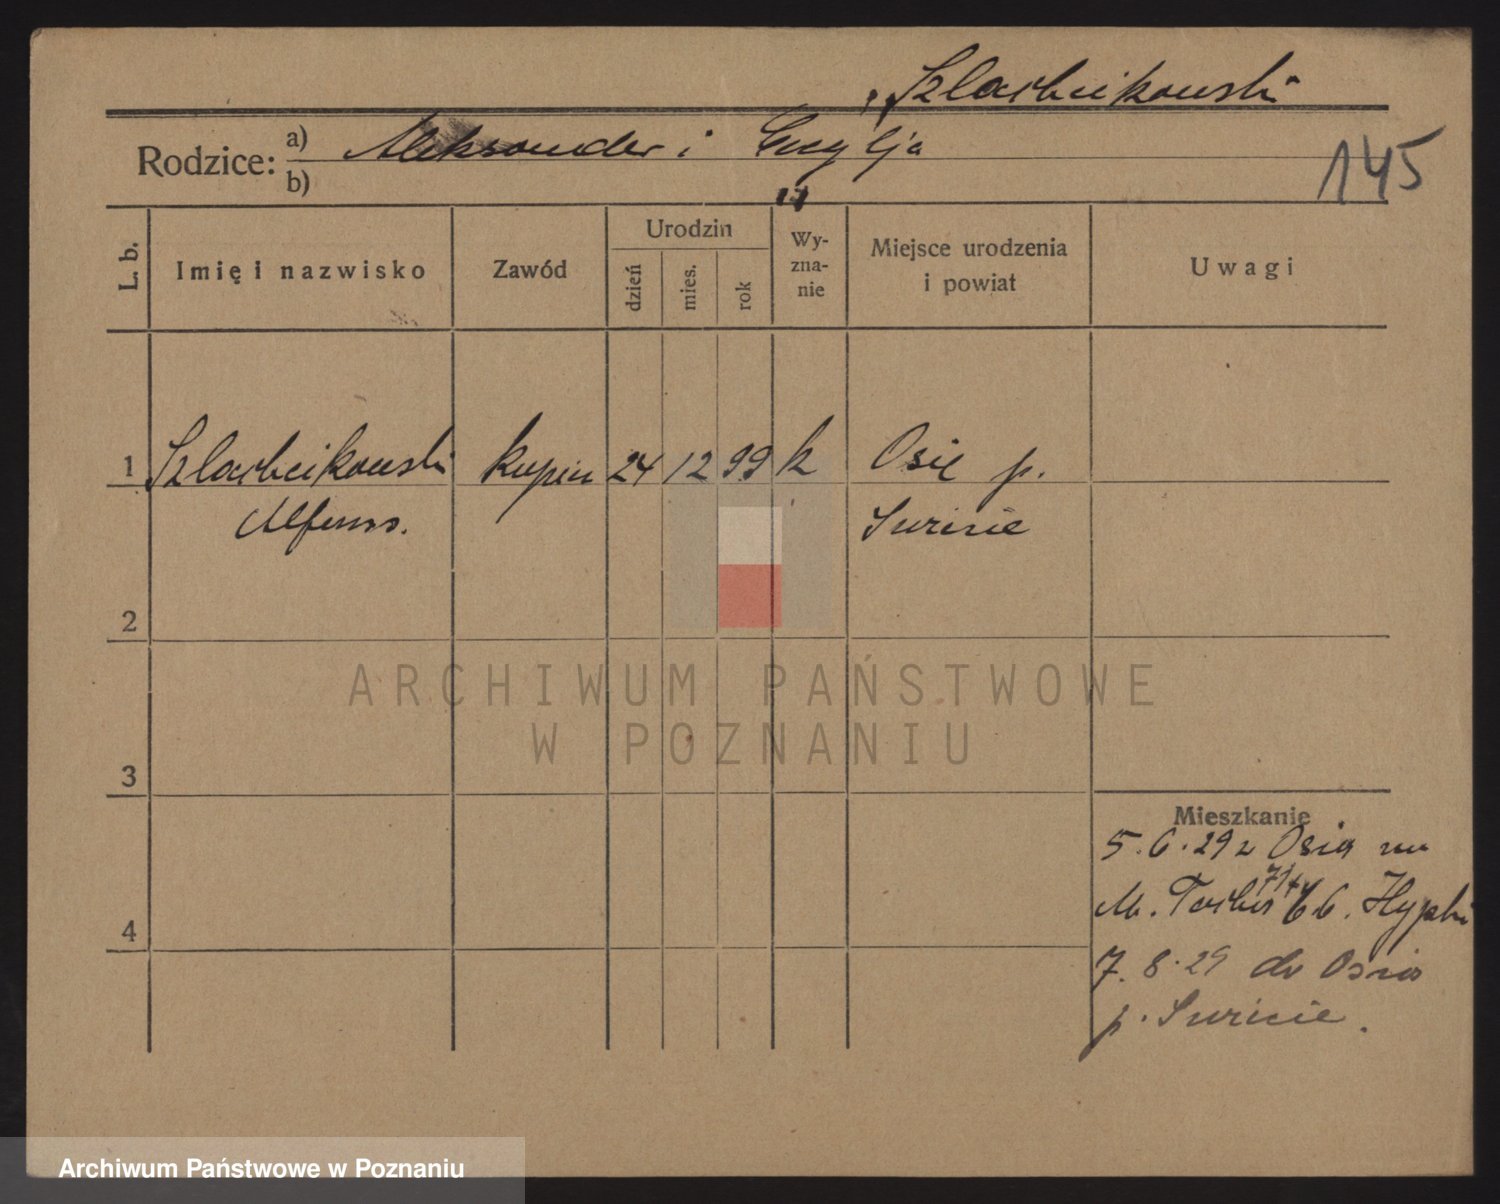 Szlarbeikowski
Rodzice:
a) Aleksander i
b)
145
L. b.
Imię i nazwisko
Zawód
Urodzin
dzień
mies.
rok
Wy-
zna-
nie
Miejsce urodzenia
i powiat
Uwagi
1 Szlarbeikowski kupiec 24 12 99 k Osie p.
Alfons. Świecie
2
3
4
Mieszkanie
5.6.29 z Osia
M. 66.
7.8.29 do Osia
p. Świecie.
ARCHIWUM PAŃSTWOWE
W POZNANIU
Archiwum Państwowe w Poznaniu